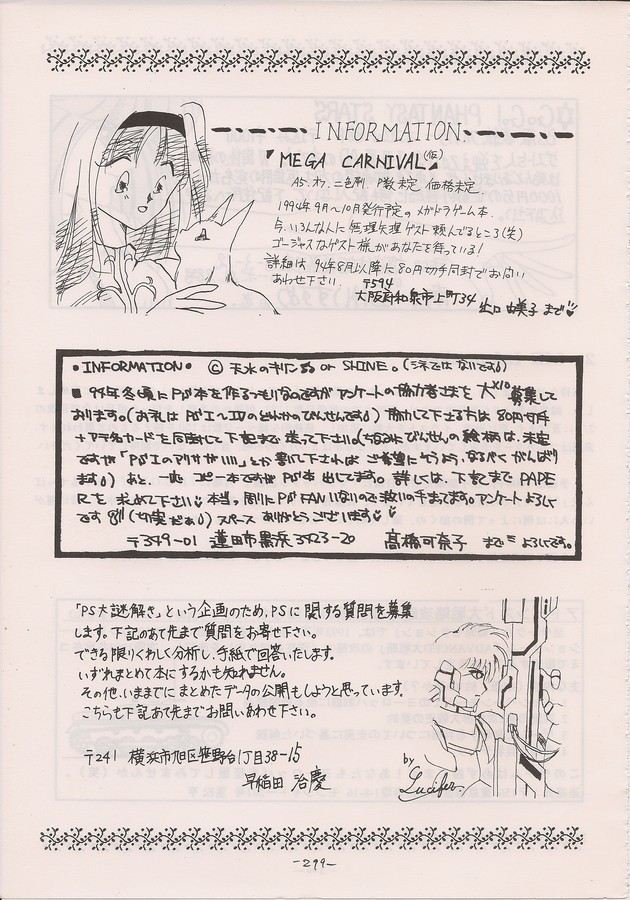 INFORMATION
「MEGA CARNIVAL(仮)」
A5.オフ.二色刷 P数未定 価格未定.
1994年9月～10月発行予定のメガドラゲーム本
今、いろんな人に無理矢理ゲスト頼んでるところ(笑)
ゴージャスなゲスト様があなたを待っている!
詳細は '94年8月以降に80円切手同封でお問い
あわせ下さい.
〒594
大阪府和泉市上町34
出口 由美子 まで
•INFORMATION• © 天水のキリン or SHINE。(シネではないです)
■ 94年冬頃にPS本を作るつもりなのですがアンケートの協力者さまを大×10募集して
おります。(お礼はPSⅠ～Ⅳのどれかのびんせんです) 協力して下さる方は80円切手
+アテ名カードを同封にて下記まで送って下さい。(ちなみにびんせんの絵柄は、未定
ですが「PSⅠのアリサがいい」とか書いて下されば ご希望にそうよう、なるべくがんばり
ます) あと、一応 コピー本ですがPS本出してます。詳しくは、下記まで PAPE
Rを 求めて下さい 本当。周りにPS FANいないので救いの手まってます。アンケートよろしく
です (切実だぁ) スペース ありがとうございます
〒349-01 蓮田市黒浜3923-20 高橋可奈子 まで よろしくです。
「PS大謎解き」という企画のため、PSに関する質問を募集
します。下記のあて先まで質問をお寄せ下さい。
できる限りくわしく分析し、手紙で回答いたします。
いずれまとめて本にするかも知れません。
その他、いままでにまとめたデータの公開もしようと思っています。
こちらも下記あて先までお問いあわせ下さい。
〒241 横浜市旭区笹野台1丁目38-15
早稲田 治慶
by
Lucifer.
-299-